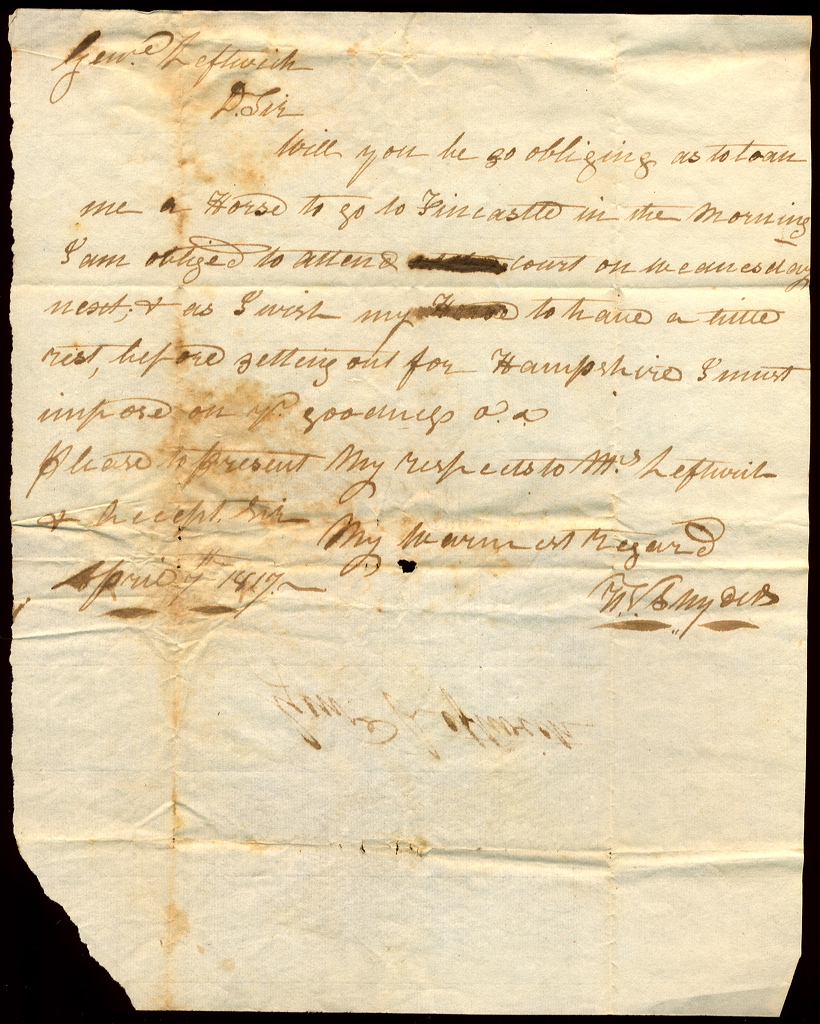 Genl. Leftwich
D. Sir
Will you be so obliging as to loan
me a Horse to go to Fincastle in the Morning
I am obliged to attend court on Wednesday
next; & as I wish my Horse to have a little
rest, before setting out for Hampshire I must
impose on yr. goodness
Please to present My respects to Mrs Leftwich
& Accept. Sir
My Warmest regard
April 7th 1817.
Genl Leftwich